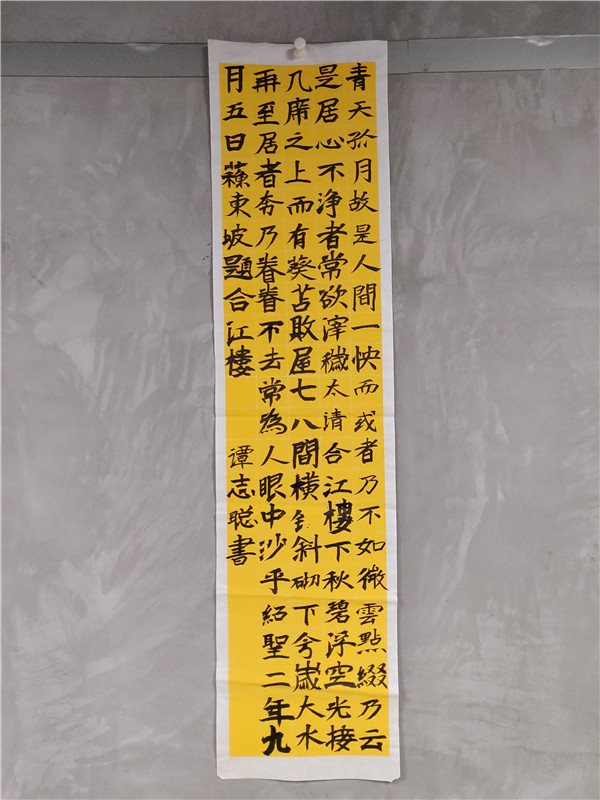 青天孤月故是人間一怏而或者乃不如微雲點綴乃云
是居心不浄者常欲滓穢太请合江樓下秋碧浮空光接
几席之上而有葵苫敗屋七八間橫斜砌下兮嵗大水
再至居者奔乃眷眷不去常為人眼中沙乎紹聖二年九
月五日蘇東坡題合江樓 譚志聡書